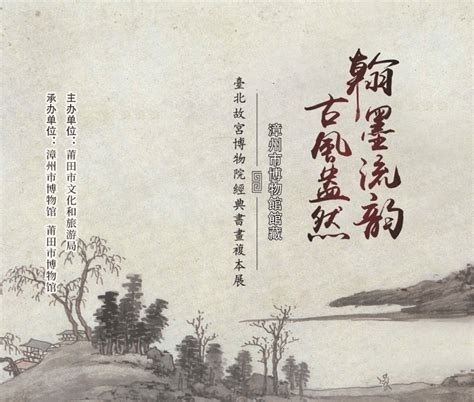 翰墨流韵
古風盎然
漳州市博物館館藏
臺北故宮博物院經典書畫複本展
主办单位：莆田市文化和旅游局
承办单位：漳州市博物馆 莆田市博物馆